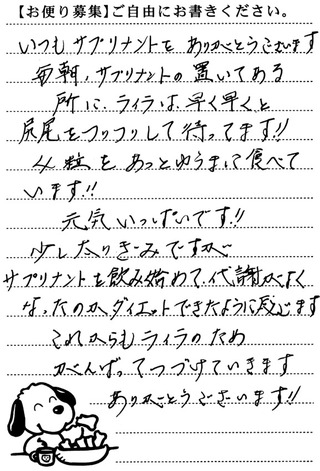 【お便り募集】ご自由にお書きください。
いつもサプリナントを ありがとうございます
毎朝、サプリナントの 置いてある
所に、ライラは、早く早くと
尻尾をフリフリして待ってます!!
4粒を あっとゆうまに食べて
います!!
元気いっぱいです!!
少し太りぎみですが
サプリナントを飲み始めて、代謝がよく
なったのかダイエットできたように感じます
これからもライラのため
がんばってつづけていきます
ありがとうございます!!